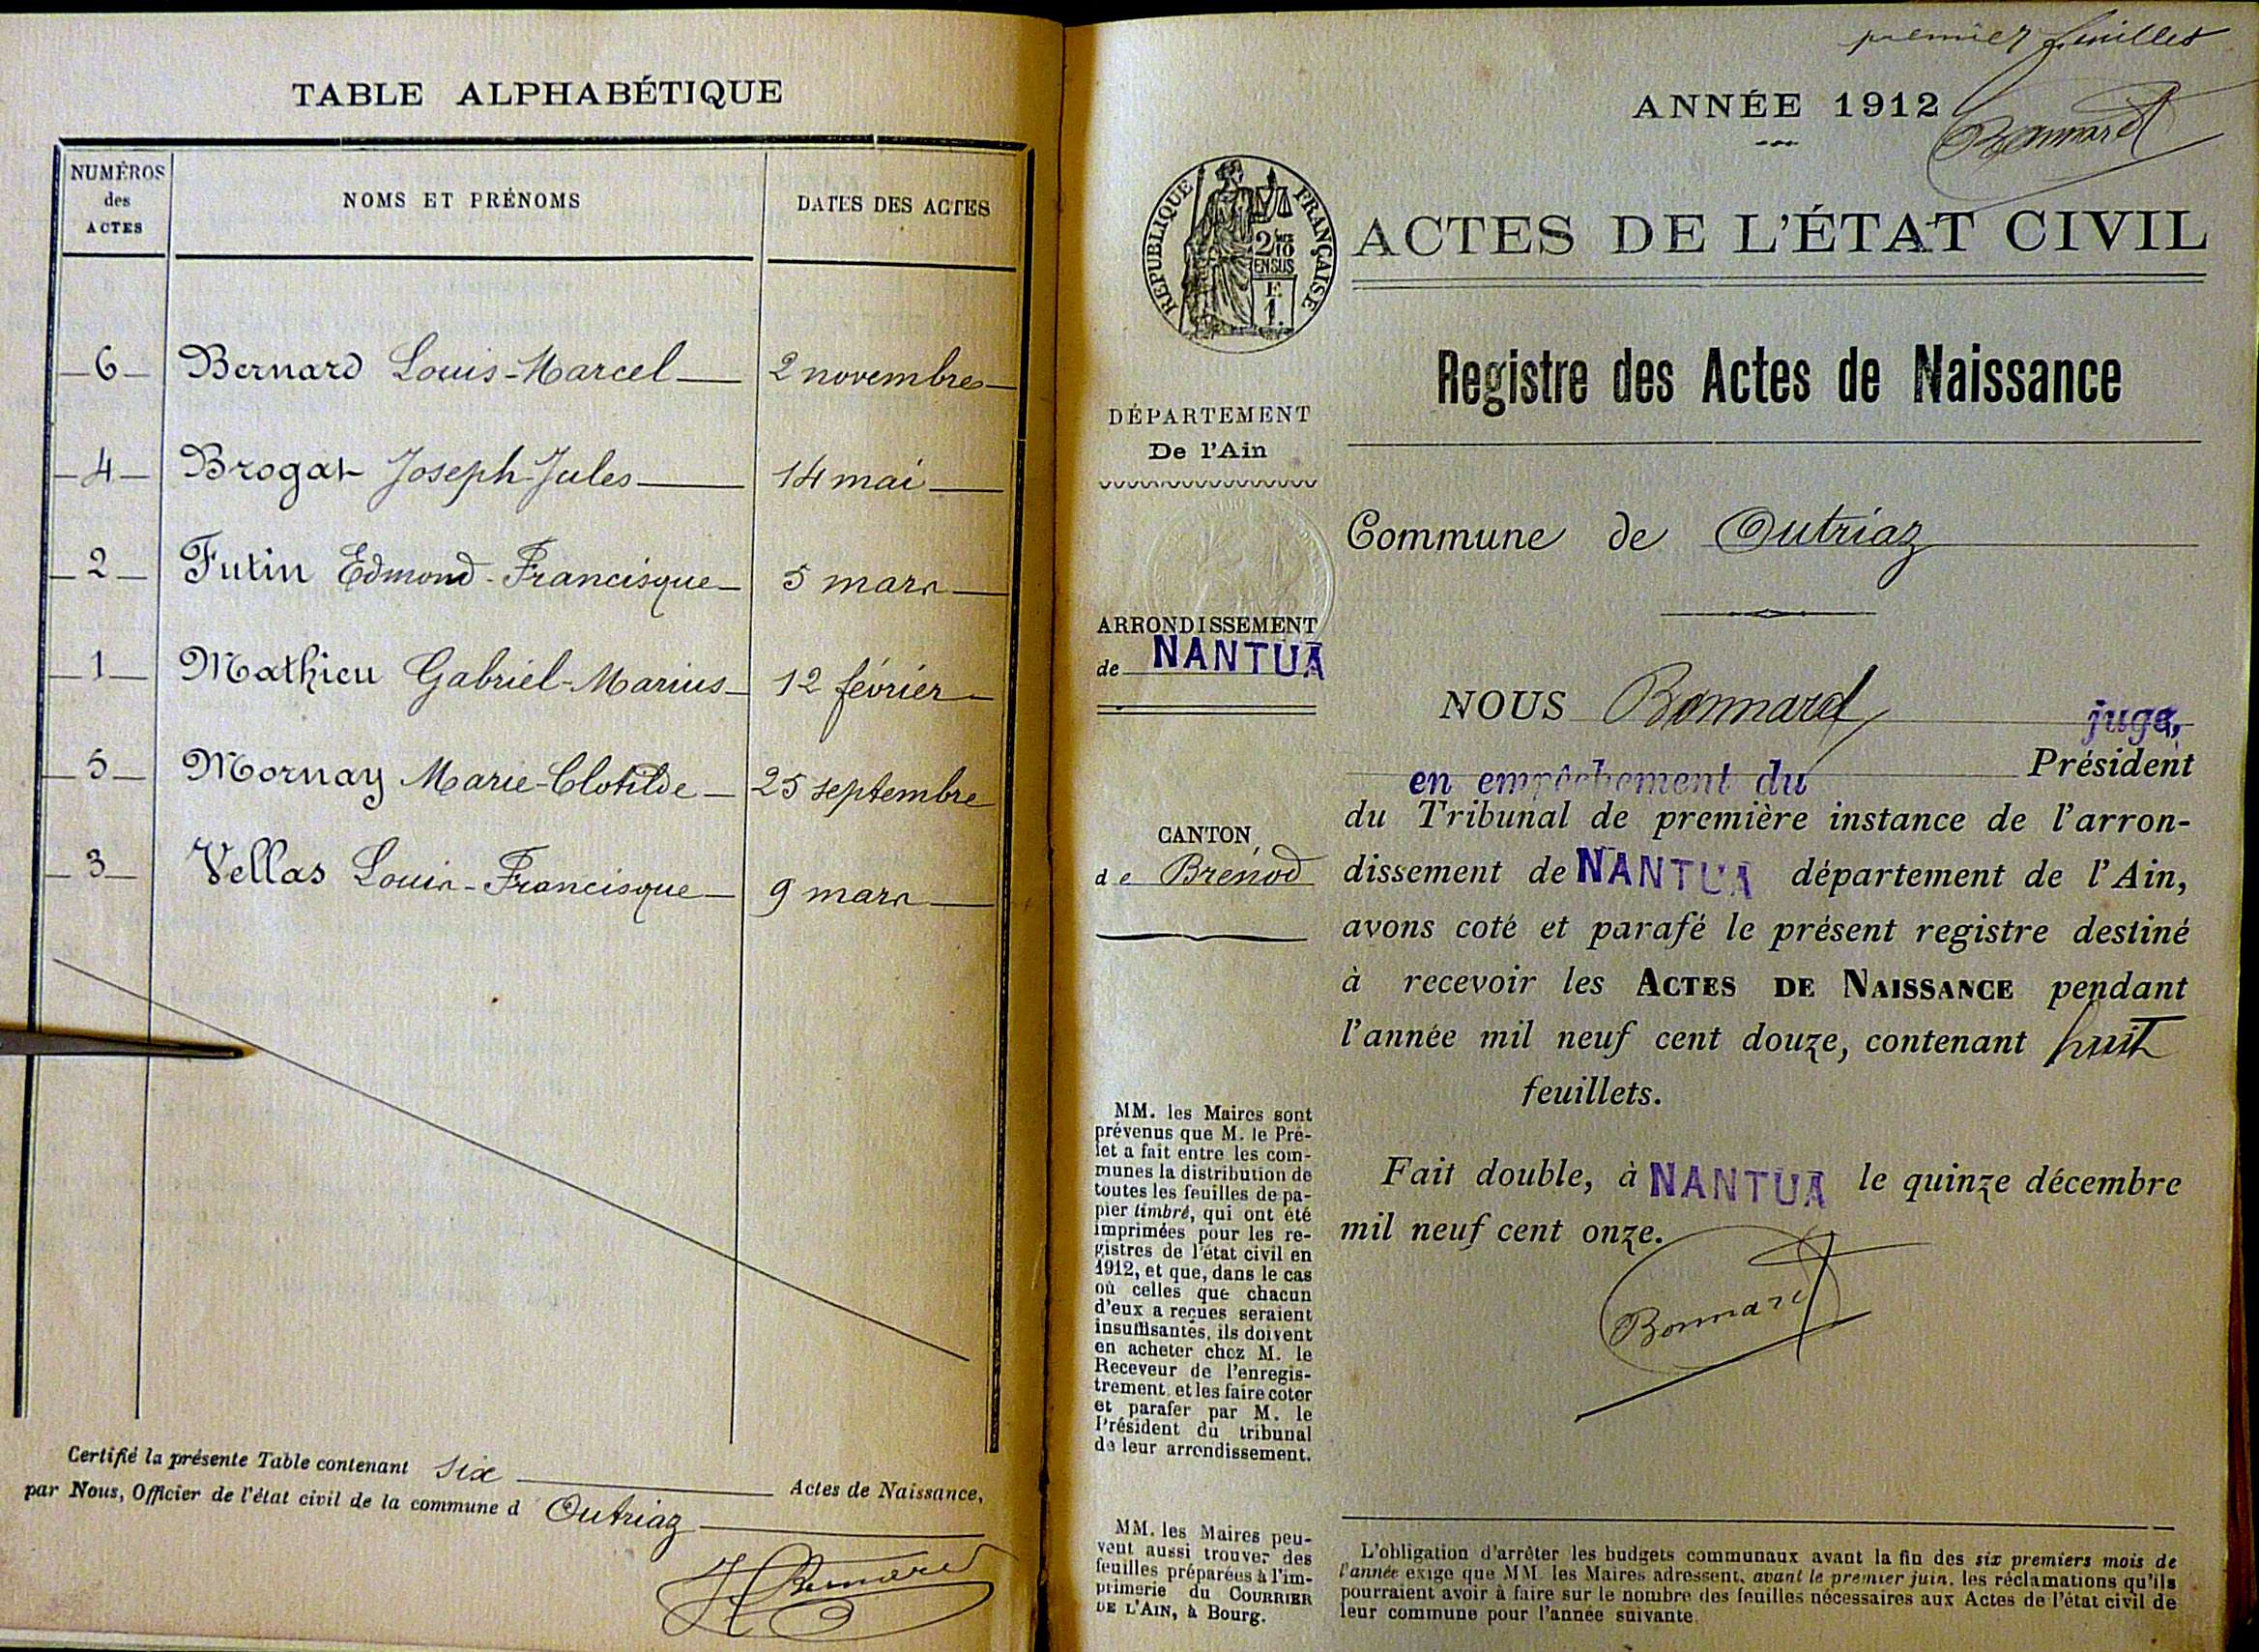 TABLE ALPHABÉTIQUE
NUMÉROS
des
ACTES
NOMS ET PRÉNOMS
DATES DES ACTES
6 Bernard Louis-Marcel 2 novembre
4 Brogat Joseph-Jules 14 mai
2 Futin Edmond-Francisque 5 mars
1 Mathieu Gabriel-Marius 12 février
5 Mornay Marie-Clotilde 25 septembre
3 Vellas Louis-Francisque 9 mars
Certifié la présente Table contenant six Actes de Naissance,
par Nous, Officier de l'état civil de la commune d Outriaz
Bernard
premier feuillet
Bonnard
ANNÉE 1912
RÉPUBLIQUE FRANÇAISE
2/10
EN SUS
F.
1.
ACTES DE L'ÉTAT CIVIL
Registre des Actes de Naissance
DÉPARTEMENT
De l'Ain
ARRONDISSEMENT
de NANTUA
CANTON
de Brénod
MM. les Maires sont
prévenus que M. le Pré-
fet a fait entre les com-
munes la distribution de
toutes les feuilles de pa-
pier timbré, qui ont été
imprimées pour les re-
gistres de l'état civil en
1912, et que, dans le cas
où celles que chacun
d'eux a reçues seraient
insuffisantes, ils doivent
en acheter chez M. le
Receveur de l'enregis-
trement et les faire coter
et parafer par M. le
Président du tribunal
de leur arrondissement.
MM. les Maires peu-
vent aussi trouver des
feuilles préparées à l'im-
primerie du COURRIER
DE L'AIN, à Bourg.
Commune de Outriaz
NOUS Bonnard juge,
en empêchement du Président
du Tribunal de première instance de l'arron-
dissement de NANTUA département de l'Ain,
avons coté et parafé le présent registre destiné
à recevoir les ACTES DE NAISSANCE pendant
l'année mil neuf cent douze, contenant huit
feuillets.
Fait double, à NANTUA le quinze décembre
mil neuf cent onze.
Bonnard
L'obligation d'arrêter les budgets communaux avant la fin des six premiers mois de
l'année exige que MM. les Maires adressent, avant le premier juin, les réclamations qu'ils
pourraient avoir à faire sur le nombre des feuilles nécessaires aux Actes de l'état civil de
leur commune pour l'année suivante.